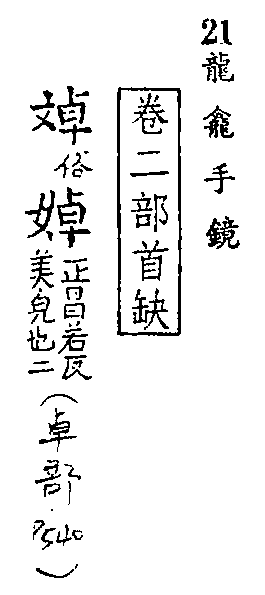 21龍龕手鏡
卷二部首缺
俗
婥
正昌若反
美皃也二
(卓部.P540)